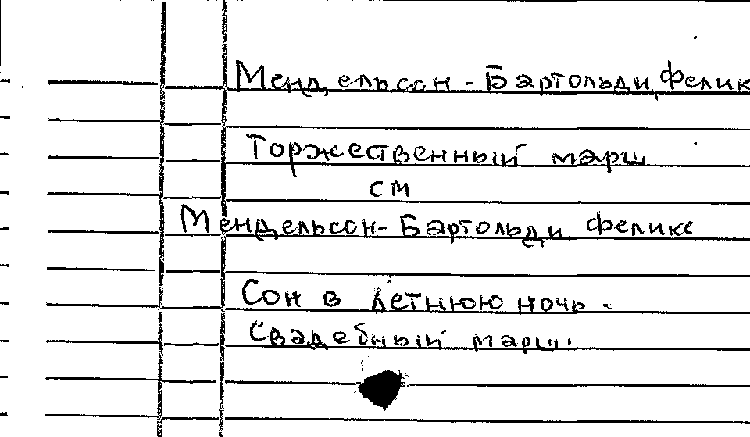 Мендельсон - Бартольди, Фелик
Торжественный марш
см
Мендельсон - Бартольди Феликс
Сон в летнюю ночь.
Свадебный марш.